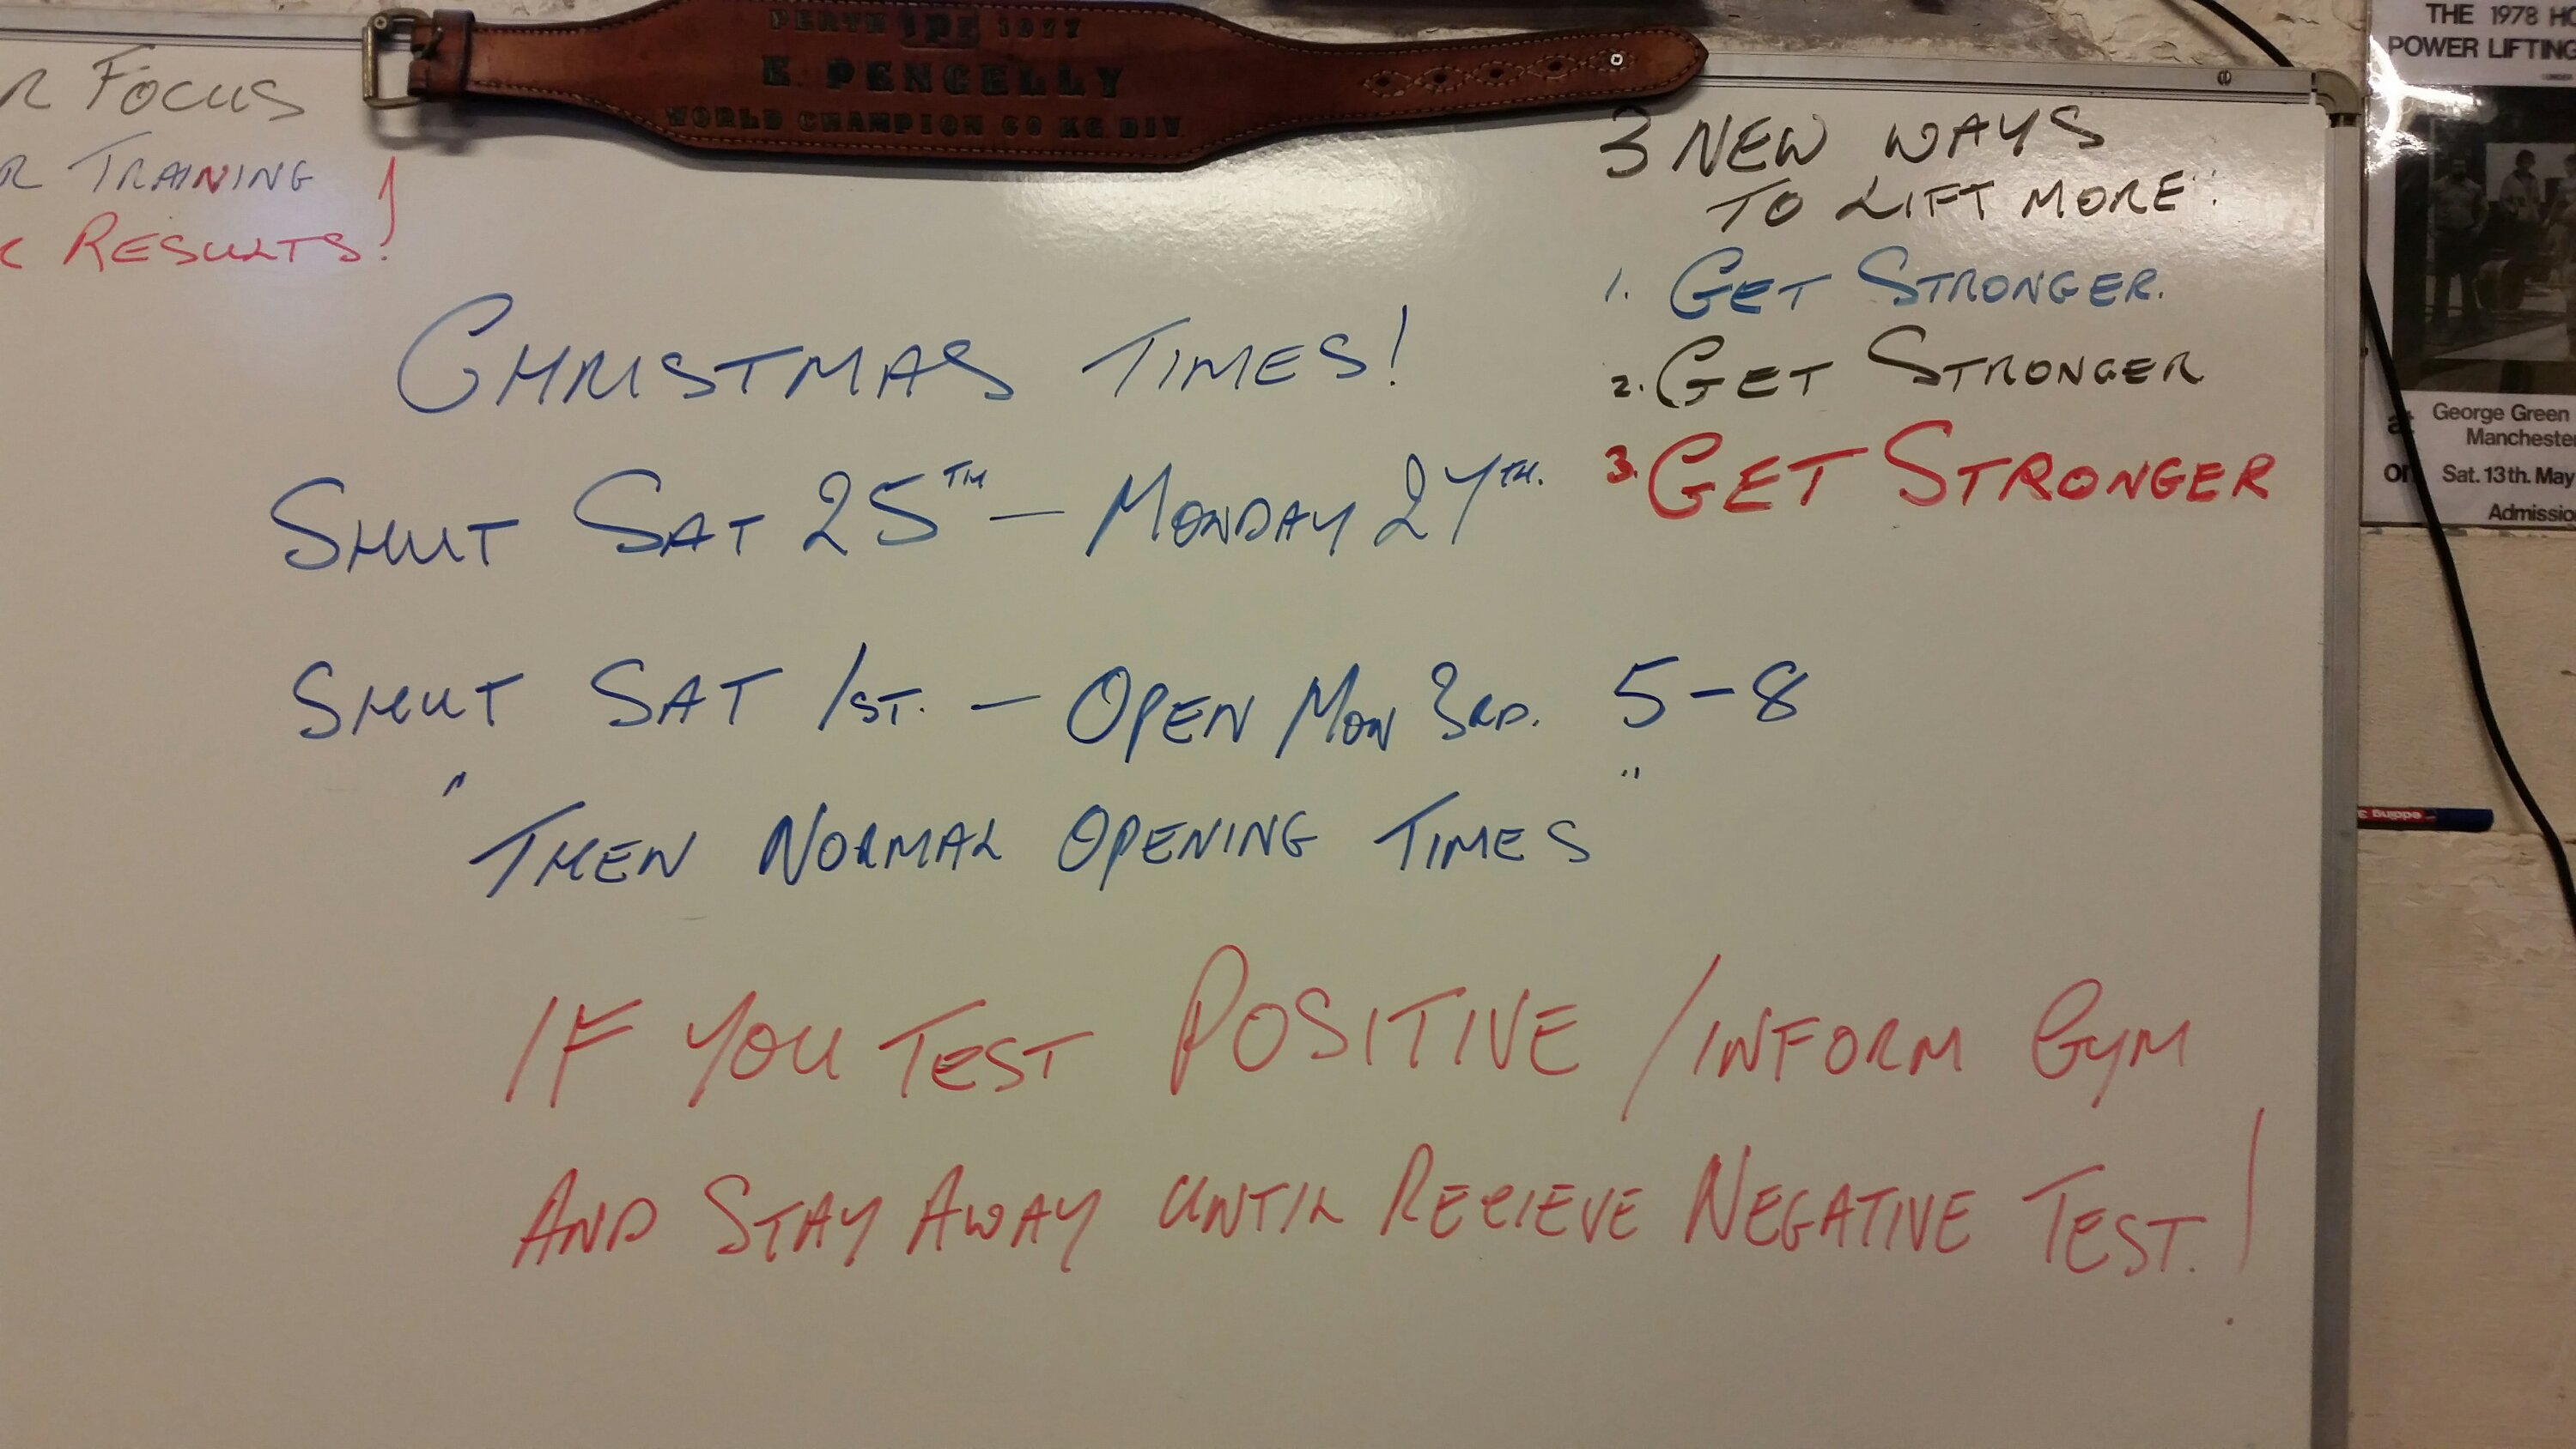 PERTH IPF 1977
E. PENGELLY
WORLD CHAMPION 60 KG DIV
R FOCUS
R TRAINING
RESULTS!
3 NEW WAYS
TO LIFT MORE".
1. GET STRONGER.
2. GET STRONGER
3. GET STRONGER
CHRISTMAS TIMES!
SHUT SAT 25TH – MONDAY 27TH.
SHUT SAT 1ST. – OPEN MON 3RD. 5-8
"THEN NORMAL OPENING TIMES"
IF YOU TEST POSITIVE / INFORM GYM
AND STAY AWAY UNTIL RECIEVE NEGATIVE TEST!
THE 1978 HO
POWER LIFTING
at George Green
Mancheste
on Sat. 13th. May
Admissio
edding 3